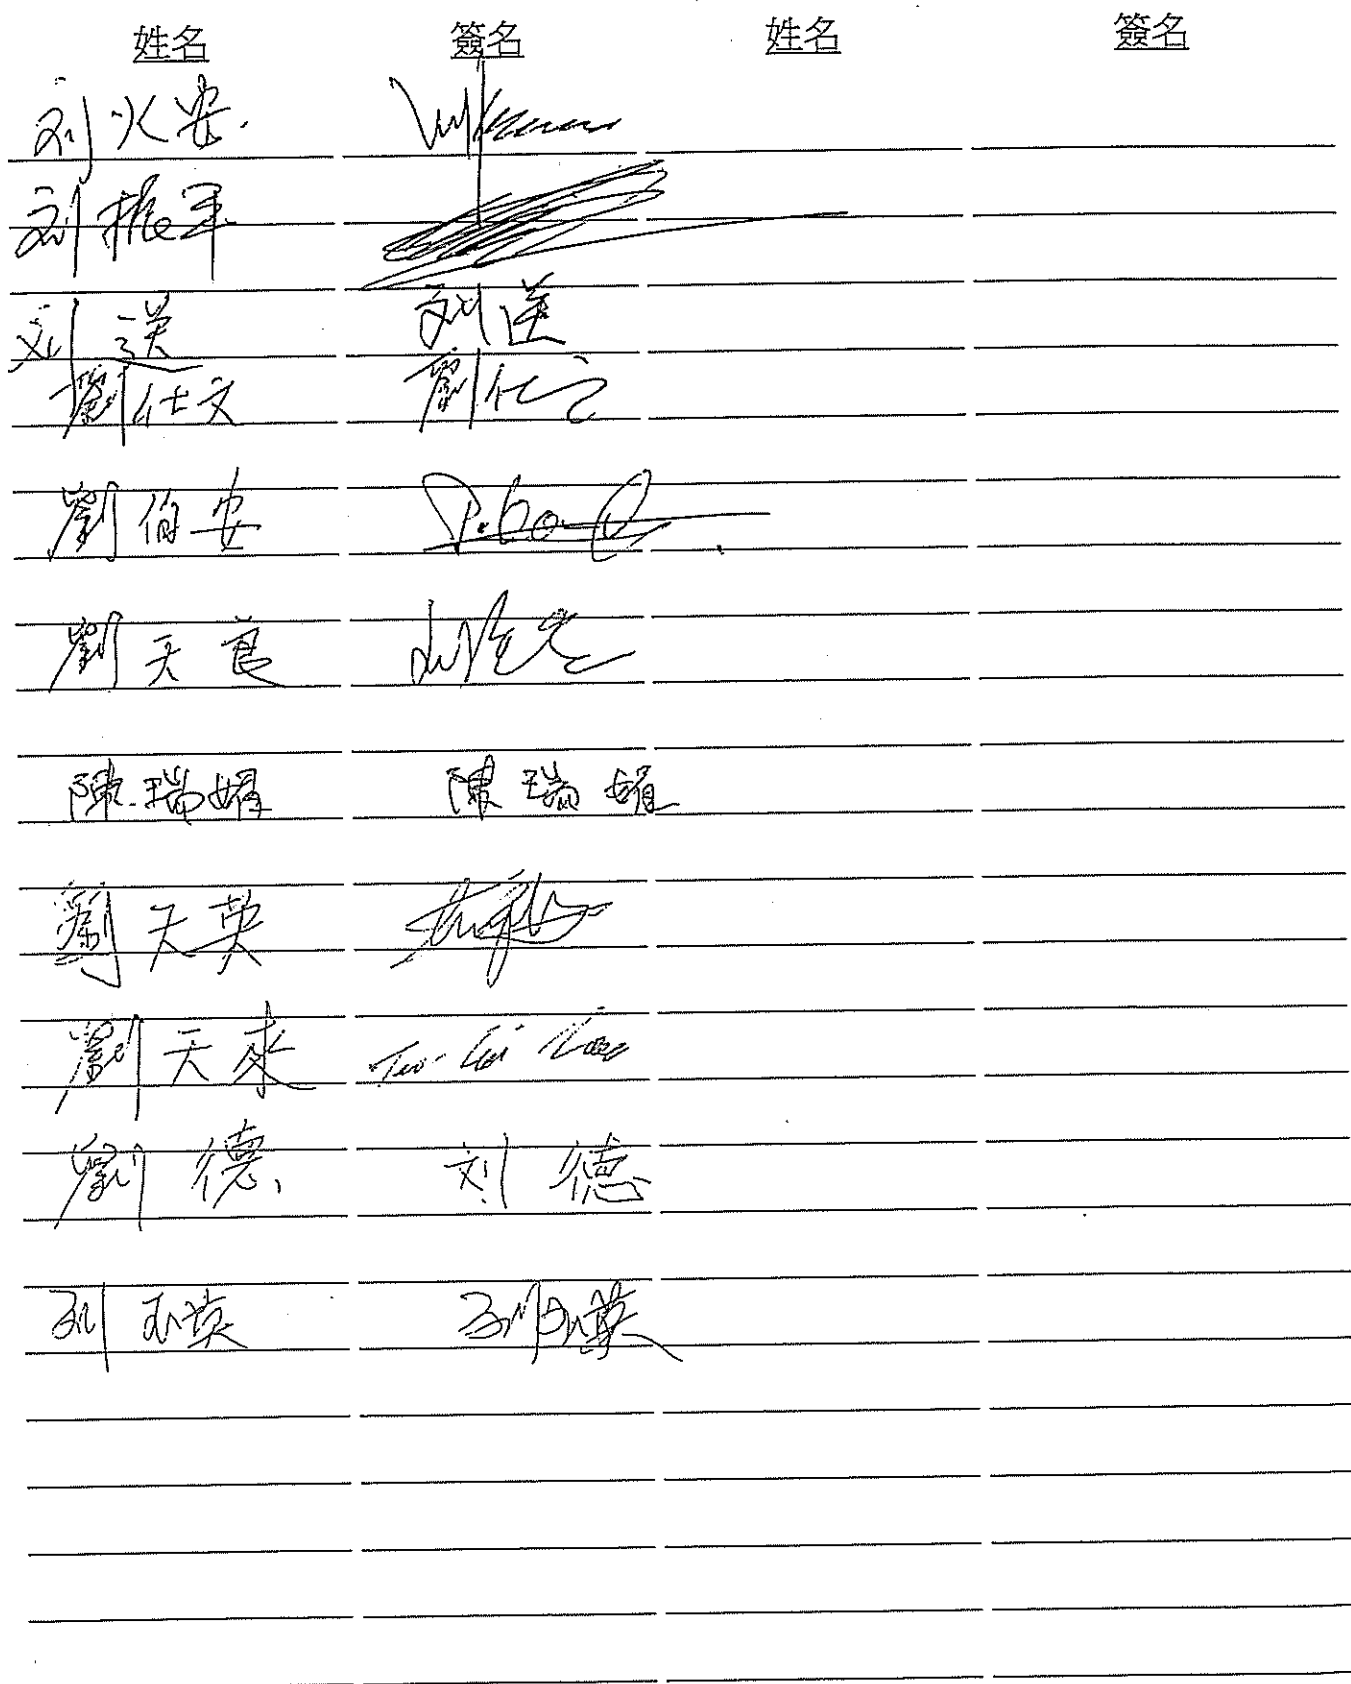 姓名 簽名 姓名 簽名
刘火安
刘振军
刘送 刘送
劉仕文 劉仕文
劉伯安
劉天良
陳瑞娟 陳瑞娟
劉天英
劉天來
劉德 刘德
刘玉英 刘玉英